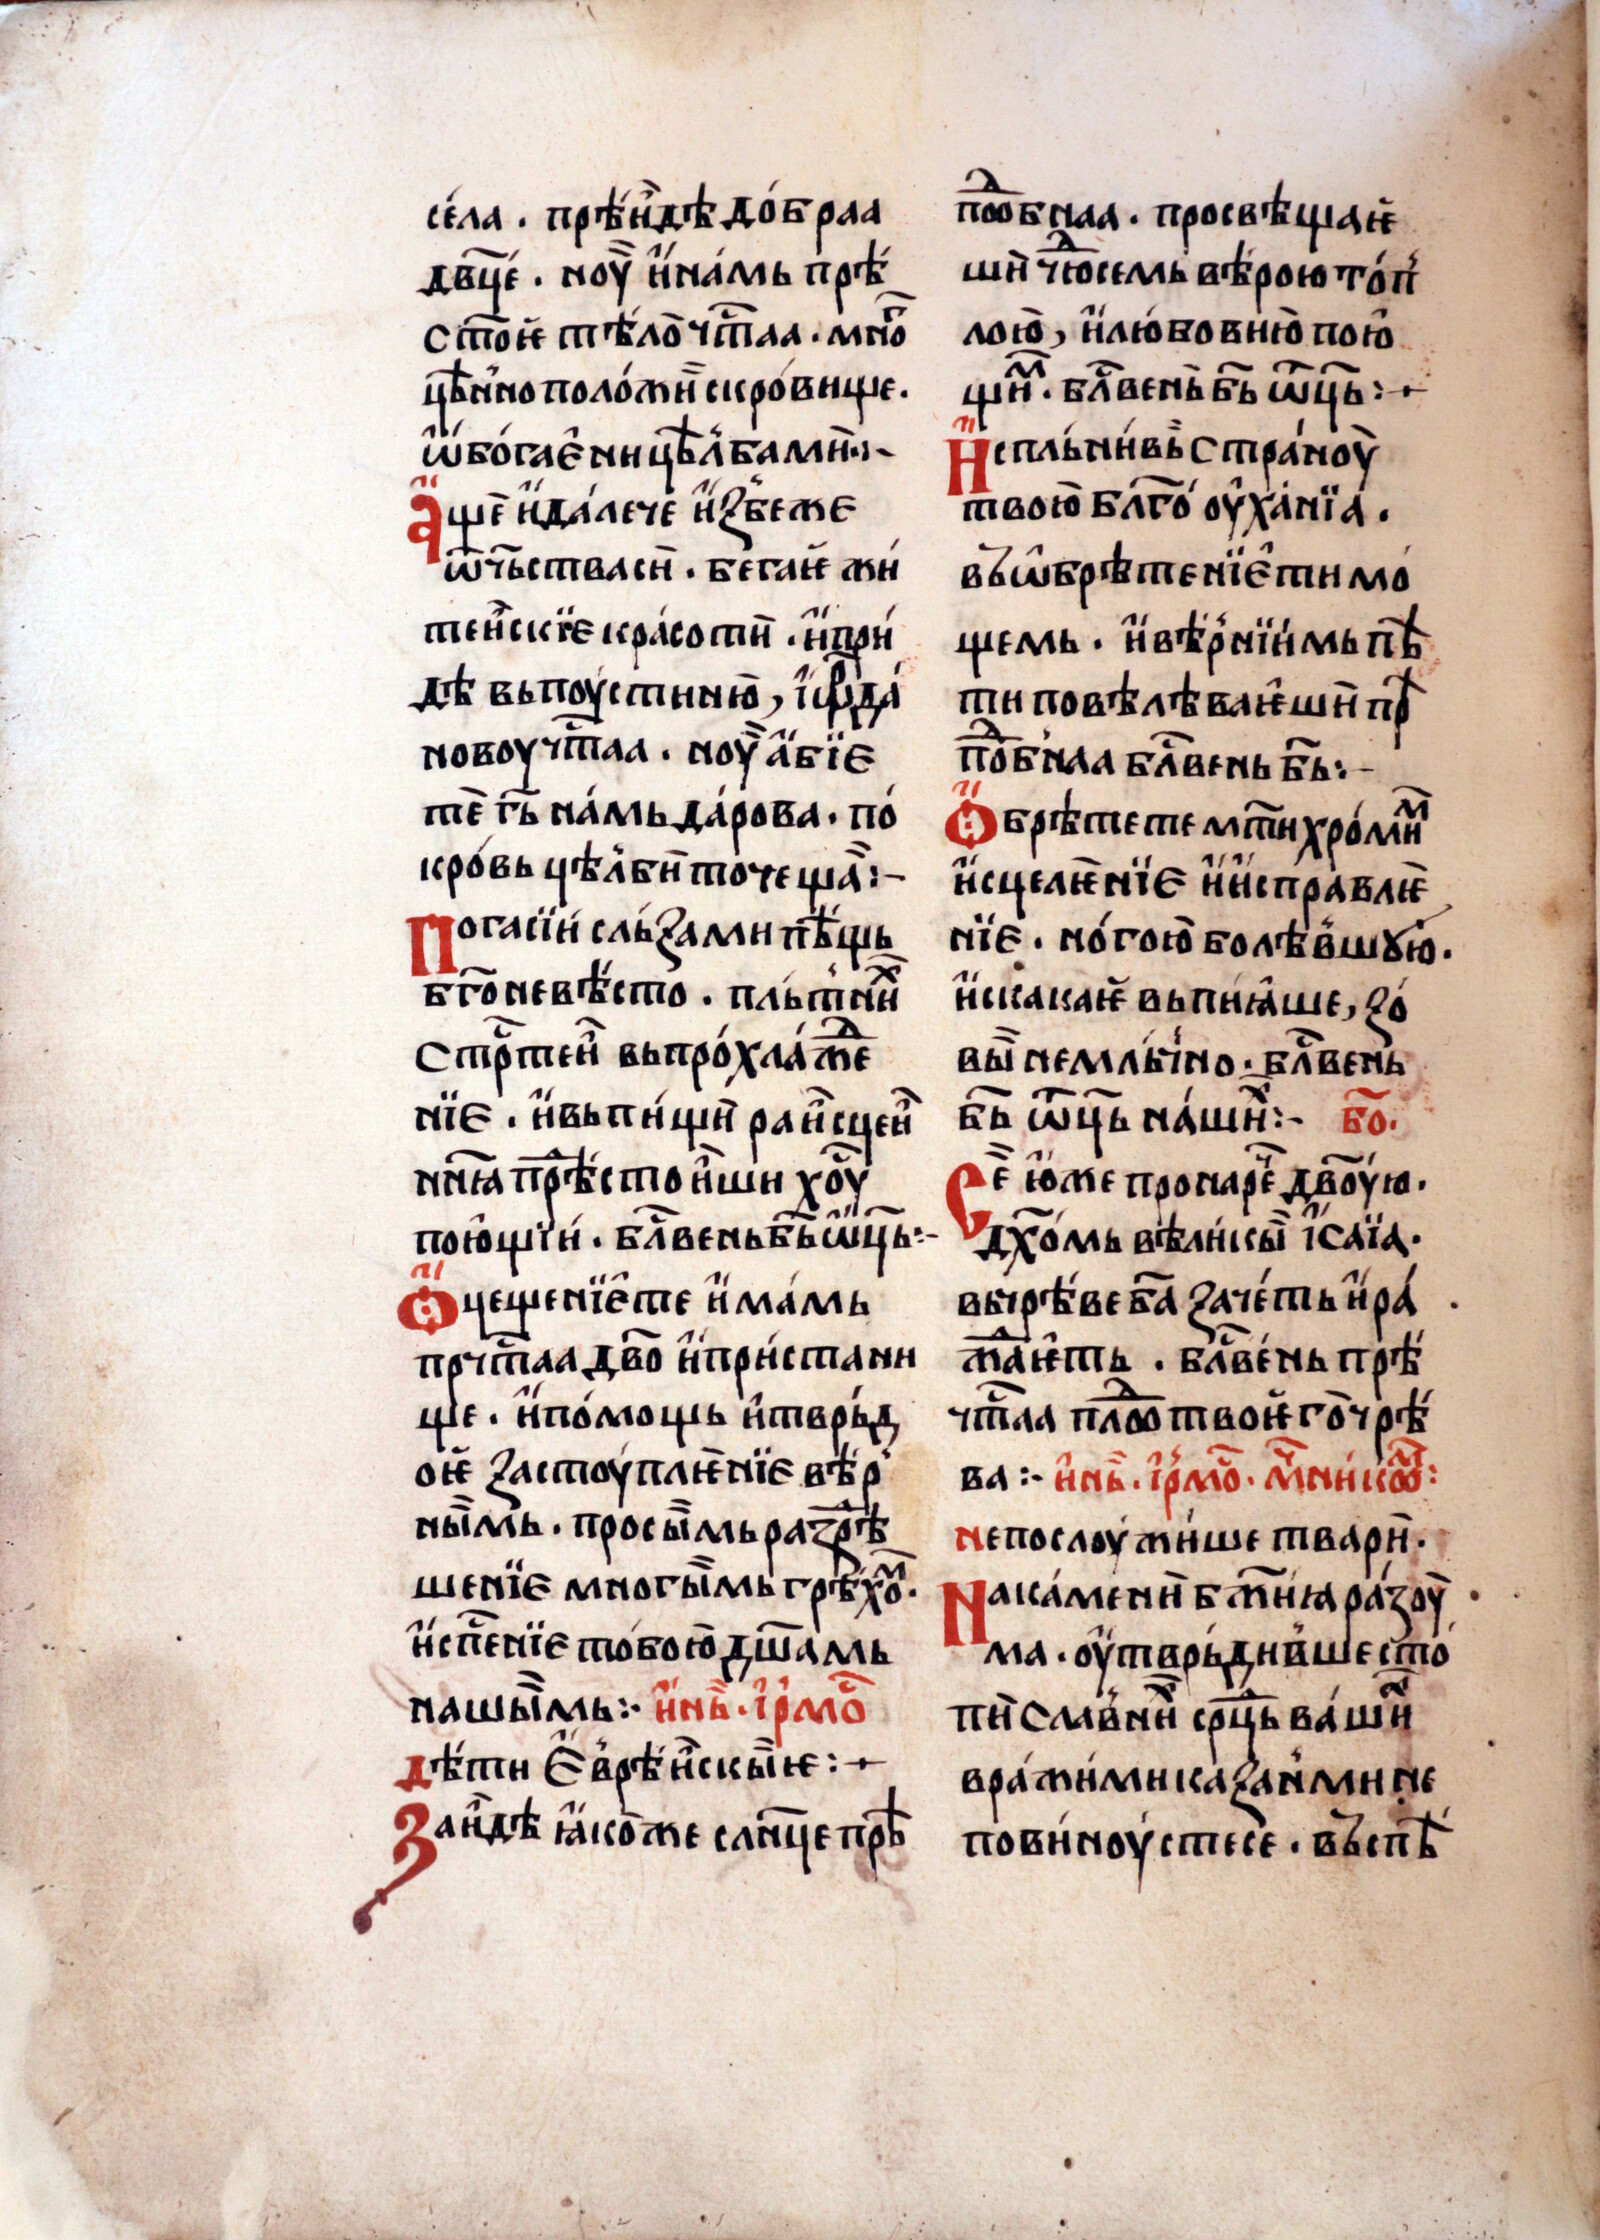 се́ла . прѣ́и҆дѣ до́браа
дв҃це́ . ноу̀ и҆на́мь прѣ́
ст҃оѥ тѣ́ло чт҃аа . мно҃
цѣ́нно поло́жѝ скро́више .
ѡ҆бо́гаѥни цѣ́лбамѝ:-
а҆щѐ и҆да́лече и҆збе́же
ѿч҃ьствасѝ . бегаѥ̀ жи́
те́искїѥ кра́соти̇̀ . и҆при́
дѣ вьпоу́стиню̀ , і҆ѡ҆рда́
новоу чт҃аа . ноу̀ а҆бїѥ
те̏ г҃ь на́мь да́рова . по́
кро́вь цѣ́лби̇̀ точеща̀:-
Погаси́и сльзами пѣ́щь
бг҃оневѣ́сто . пль́тни̇̀х
стр҃теи̇̀ вьпро́хлажде
нїѥ . и҆вьпи́щѝ ра́исцеи̇̀
нн҃ꙗ прѣ́стои҆ши хо҃у
пою̑щїи́ . бл҃вень б҃ь ѿц҃ь:-
Ѻ҆цещенїѥ те и҆ма́мь
пр҃чт҃аа дв҃о и҆при́стани
ще . и҆по́мощь и҆твръ́д
оѥ̀ застоу́плѥ̀нїѥ вѣ́р
ны́мь . просы́мь разрѣ́
шенїѥ многы́мь грѣхо́м .
и҆сп҃енїѥ то́бою̀ дш҃амь
нашы́мь:- и҆нь̀ . і҆рмо҃
дѣти є҆врѣ́искы́ѥ:-
Заи҆дѣ ꙗ҆коже слн҃це прѣ́
по҃дбнаа . просвѣщаѥ̀
шѝ чю҃дсемь вѣ́рою то́п
лою̀ , и҆лю́бовню̀ пою̑
щи̇̀м . бл҃вень б҃ь ѿц҃ь:-
И҆спльни́вь странноу̀
твою̀ бл҃го́ оу҆ха́нїа .
въѡ҆брѣтенїѥ ти мо́
щемь . и҆вѣ́рнїимь пѣ́
ти повѣлѣваѥ̀шѝ пр
по҃дбнаа бл҃вень б҃ь:-
Ѻ҆брѣтете мт҃и хро́ми̇̀м
и҆сцелѥ̀нїѥ и҆и҆справлѥ̀
нїѥ . но́гою̀ болѣвшꙋю .
и҆скакаѥ̀ вьпиꙗше , зо́
вы̀ немль́чно . бл҃вень
б҃ь ѿц҃ь на́ши̇̀х:- б҃о .
Се̏ ю҆же пронаре̏ дв҃оую .
дх҃омь вѣли́кы̀ і҆са́їа .
вьчрѣве б҃а заче́ть и҆ра́
ждаѥ̀ть . бл҃ве́нь прѣ́
чт҃аа пло҃д твоѥго̀ чрѣ́
ва:- и҆нь̀ . і҆рмо҃ .
непослоужи́ше твари̇̀ .
На ка́менѝ бж҃ниꙗ ра́зоу̀
ма . оу҆твръ́дивше сто
пѝ славни̇̀х ср҃ць ва́ши̇̀х
вражи́ми казаи҆ми не
пови́ноу́стесе . въспѣ́